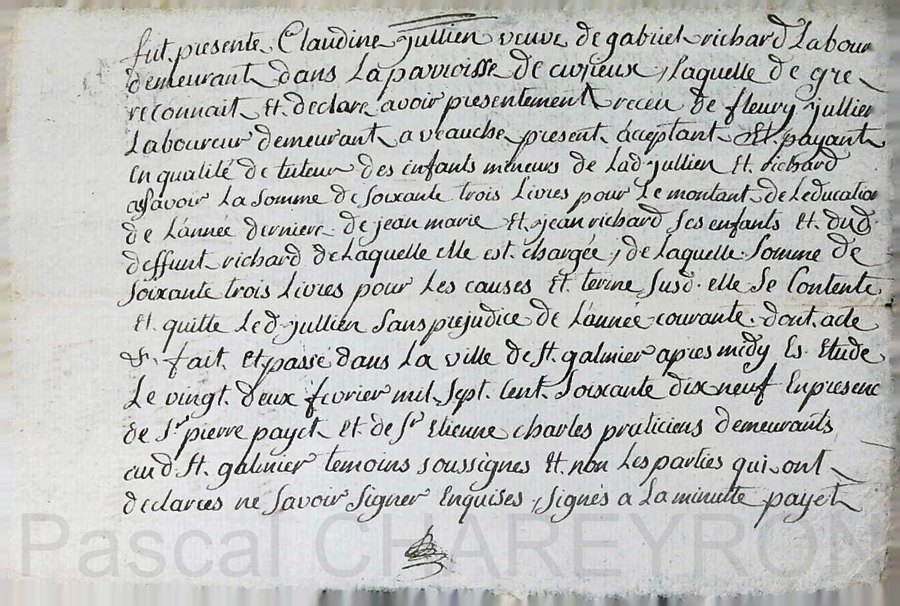 fut presente Claudine jullien veuve de gabriel richard Labour
demeurant dans La parroisse de civrieux, laquelle de gre
reconnait Et declare avoir presentement receu de fleury jullien
Laboureur demeurant a veauche present acceptant Et payant
En qualité de tuteur des enfants mineurs de Lad. jullien Et richard
asavoir La somme de soixante trois Livres pour Le montant de Leducation
de L'année derniere de jean marie Et jean richard ses enfants Et dud
deffunt richard de Laquelle elle est chargée, de Laquelle somme de
soixante trois Livres pour Les causes Et terme susd. elle se Contente
Et quitte Led. jullien sans prejudice de L'année courante. dont acte
fait Et passé dans La ville de St. galmier apres midy Es Etude
Le vingt deux fevrier mil sept cent soixante dix neuf En presenc
de Sr. pierre payet Et de Sr Etienne charles praticiens demeurants
aud. St. galmier temoins soussignes Et non Les parties qui ont
declarees ne savoir signer Enquises, signés a La minutte payet
Pascal CHAREYRON